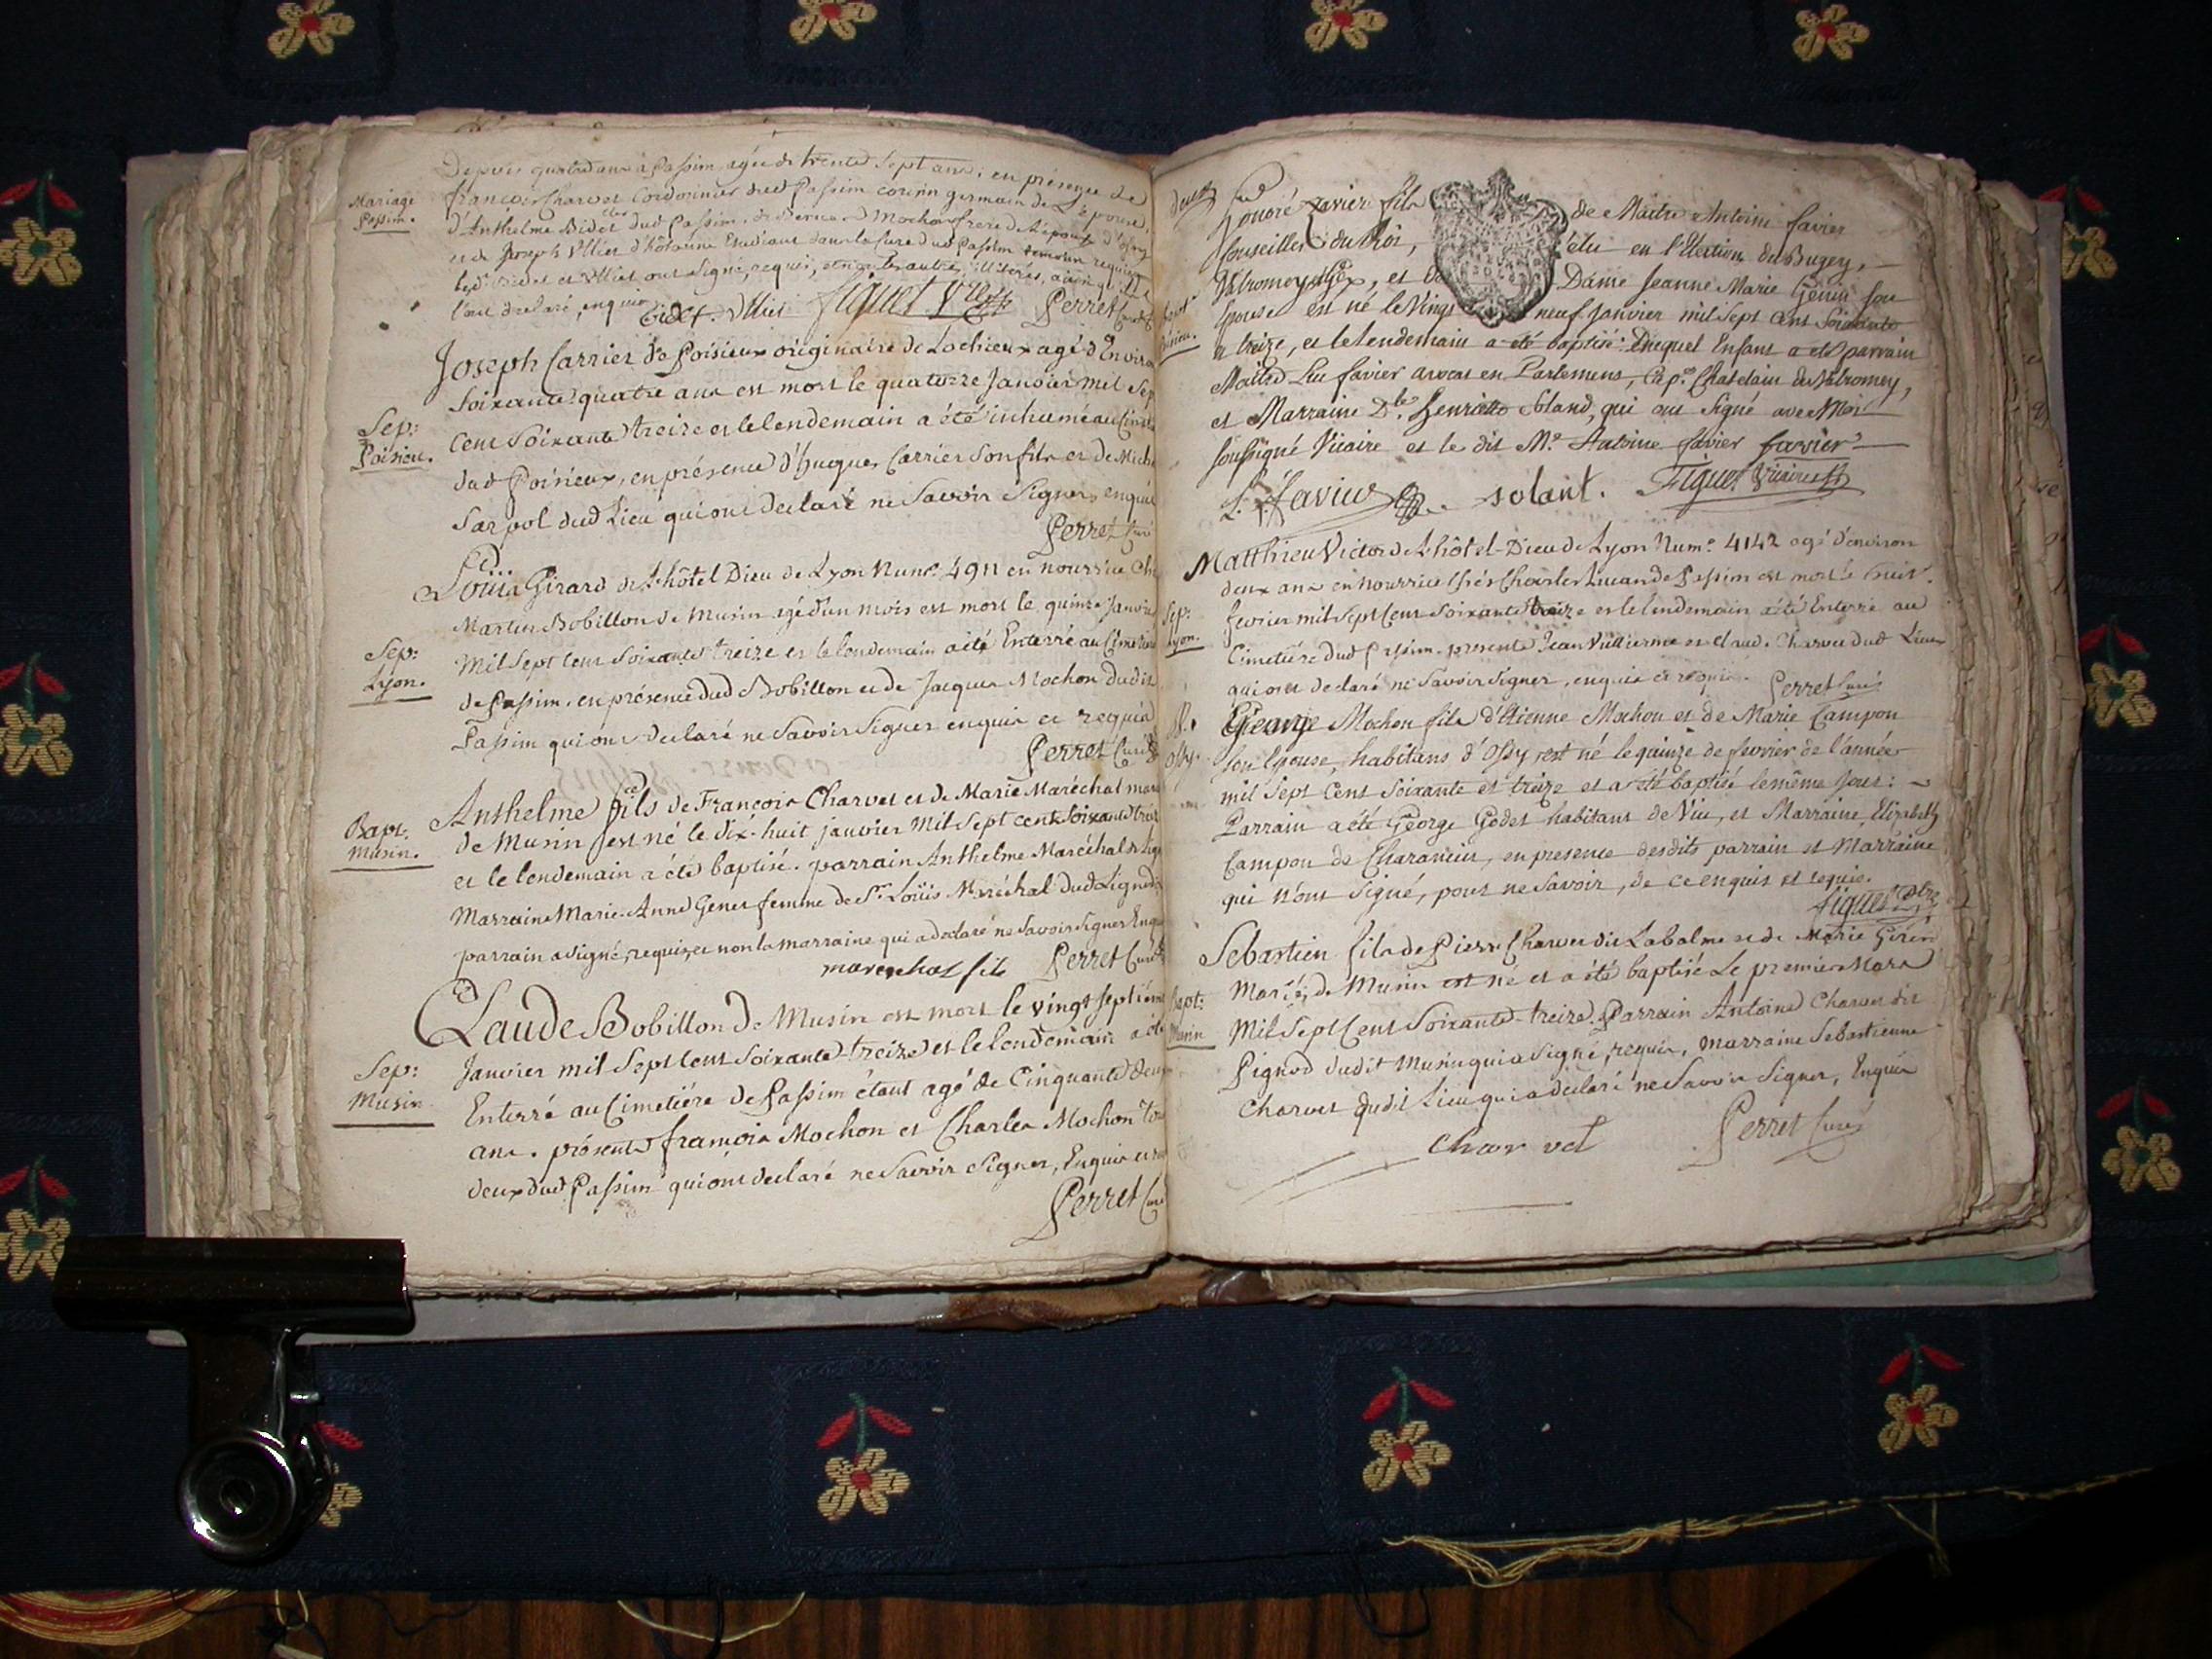 Depuis quatre ans à Passim, agée de trente Sept ans; en présence de
Mariage
Passim.
françois Charvet Cordonnier dud Passim cousin germain de L'epouse,
d'Anthelme Bidet dud Passim, de Bernard Mochon frere de Lepoux d'ossy
et de Joseph Ulliet d'hôtonne Etudiant dans la Cure dud Passim temoins requis
lesd. Bidet et Ulliet ont signé, requis, et non les autres, illiterés, ainsi qu'ils
l'ont declaré, enquis
Bidet. Ulliet figuet Vre Perret Curé
Joseph Carrier de Poisieux originaire de Lochieux agé d'Enviro
Soixante quatre ans est mort le quatorze Janvier mil Sep
Sep:
Poisieu.
cent Soixante treize et le lendemain a été inhumé au Cimet
dud Poisieux, en présence d'hugues Carrier Son fils et de Mich
Sarpol dud Lieu qui ont declaré ne Savoir Signer, enquis
Perret Curé
Louis Girard de L'hôtel Dieu de Lyon Num.o 4911 en nourrice Ché
Martin Bobillon de Musin agé d'un mois est mort le quinze Janvie
Sep:
Lyon.
Mil Sept Cent Soixante treize et le lendemain a été Enterré au Cimetiere
de Passim. en présence dud Bobillon et de Jacques Mochon dudit
Passim qui ont declaré ne Savoir Signer enquis et requis
Perret Curé
Anthelme fils de François Charvet et de Marie Maréchal mari
Bapt:
Musin.
de Musin est né le dix-huit janvier Mil Sept cent Soixante trei
et le lendemain a été baptisé. parrain Anthelme Maréchal de Lign
Marraine Marie-Anne Genet femme de Sr Loüis Maréchal dud Ligned
parrain a signé, requis, et non la marraine qui a declaré ne Savoir Signer Enqu
marechal fils Perret Curé
Claude Bobillon de Musin est mort le vingt Septiém
Sep:
Musin
Janvier mil Sept Cent Soixante-treize et le lendemain a été
Enterré au Cimetiére de Passim étant agé de Cinquante deux
ans. présents françois Mochon et Charles Mochon tou
deux dud Passim qui ont declaré ne Savoir Signer, Enquis et
Perret Curé
Honoré Xavier fils de Maitre Antoine favier
Conseiller du Roi, élu en l'Election de Bugey,
Valromey et Gex, et de Dame Jeanne Marie Genin son
Epouse est né le Vingt neuf Janvier mil Sept Cent Soixante
et treize, et le lendemain a été baptisé: duquel Enfant a eté parrain
Maitre Luc favier avocat en Parlement, Cap.e Chatelain de Valromey,
et Marraine Dlle henriette Soland, qui ont Signé avec Moi
Soussigné Vicaire et le dit M.e Antoine favier favier
L. favier solant. Figuet Vicaire
Matthieu Victor de L'hôtel-Dieu de Lyon Num.o 4142 agé d'environ
deux ans en nourrice chés Charles Lucan de Passim est mort le huit
Sep:
Lyon.
fevrier mil Sept Cent Soixante treize et le lendemain a été Enterré au
Cimetiére dud Passim. presents Jean Vullierme et Claud. Charvet dud Lieu
qui ont declaré ne Savoir Signer, enquis et requis. Perret Curé
B.
Ossy.
George Mochon fils d'Etienne Mochon et de Marie Campon
Son Epouse, habitans d'Ossy, est né le quinze de fevrier de l'année
mil Sept Cent Soixante et treize et a été baptisé le même jour:
Parrain a été George Godet habitant de Viu, et Marraine, Elizabeth
Campon de Charancin, en presence desdits parrain et Marraine
qui n'ont Signé, pour ne Savoir, de ce enquis et requis.
figuet
Sebastien fils de Pierre Charvet dit Labalme et de Marie Girin
Mariés de Musin est né et a été baptisé Le premier Mars
Bapt:
Musin
Mil Sept Cent Soixante-treize. Parrain Antoine Charvet dit
Pignod dudit Musin qui a Signé, requis, marraine Sebastienne
Charvet dudit Lieu qui a declaré ne Savoir Signer, Enquis
Charvet Perret Curé